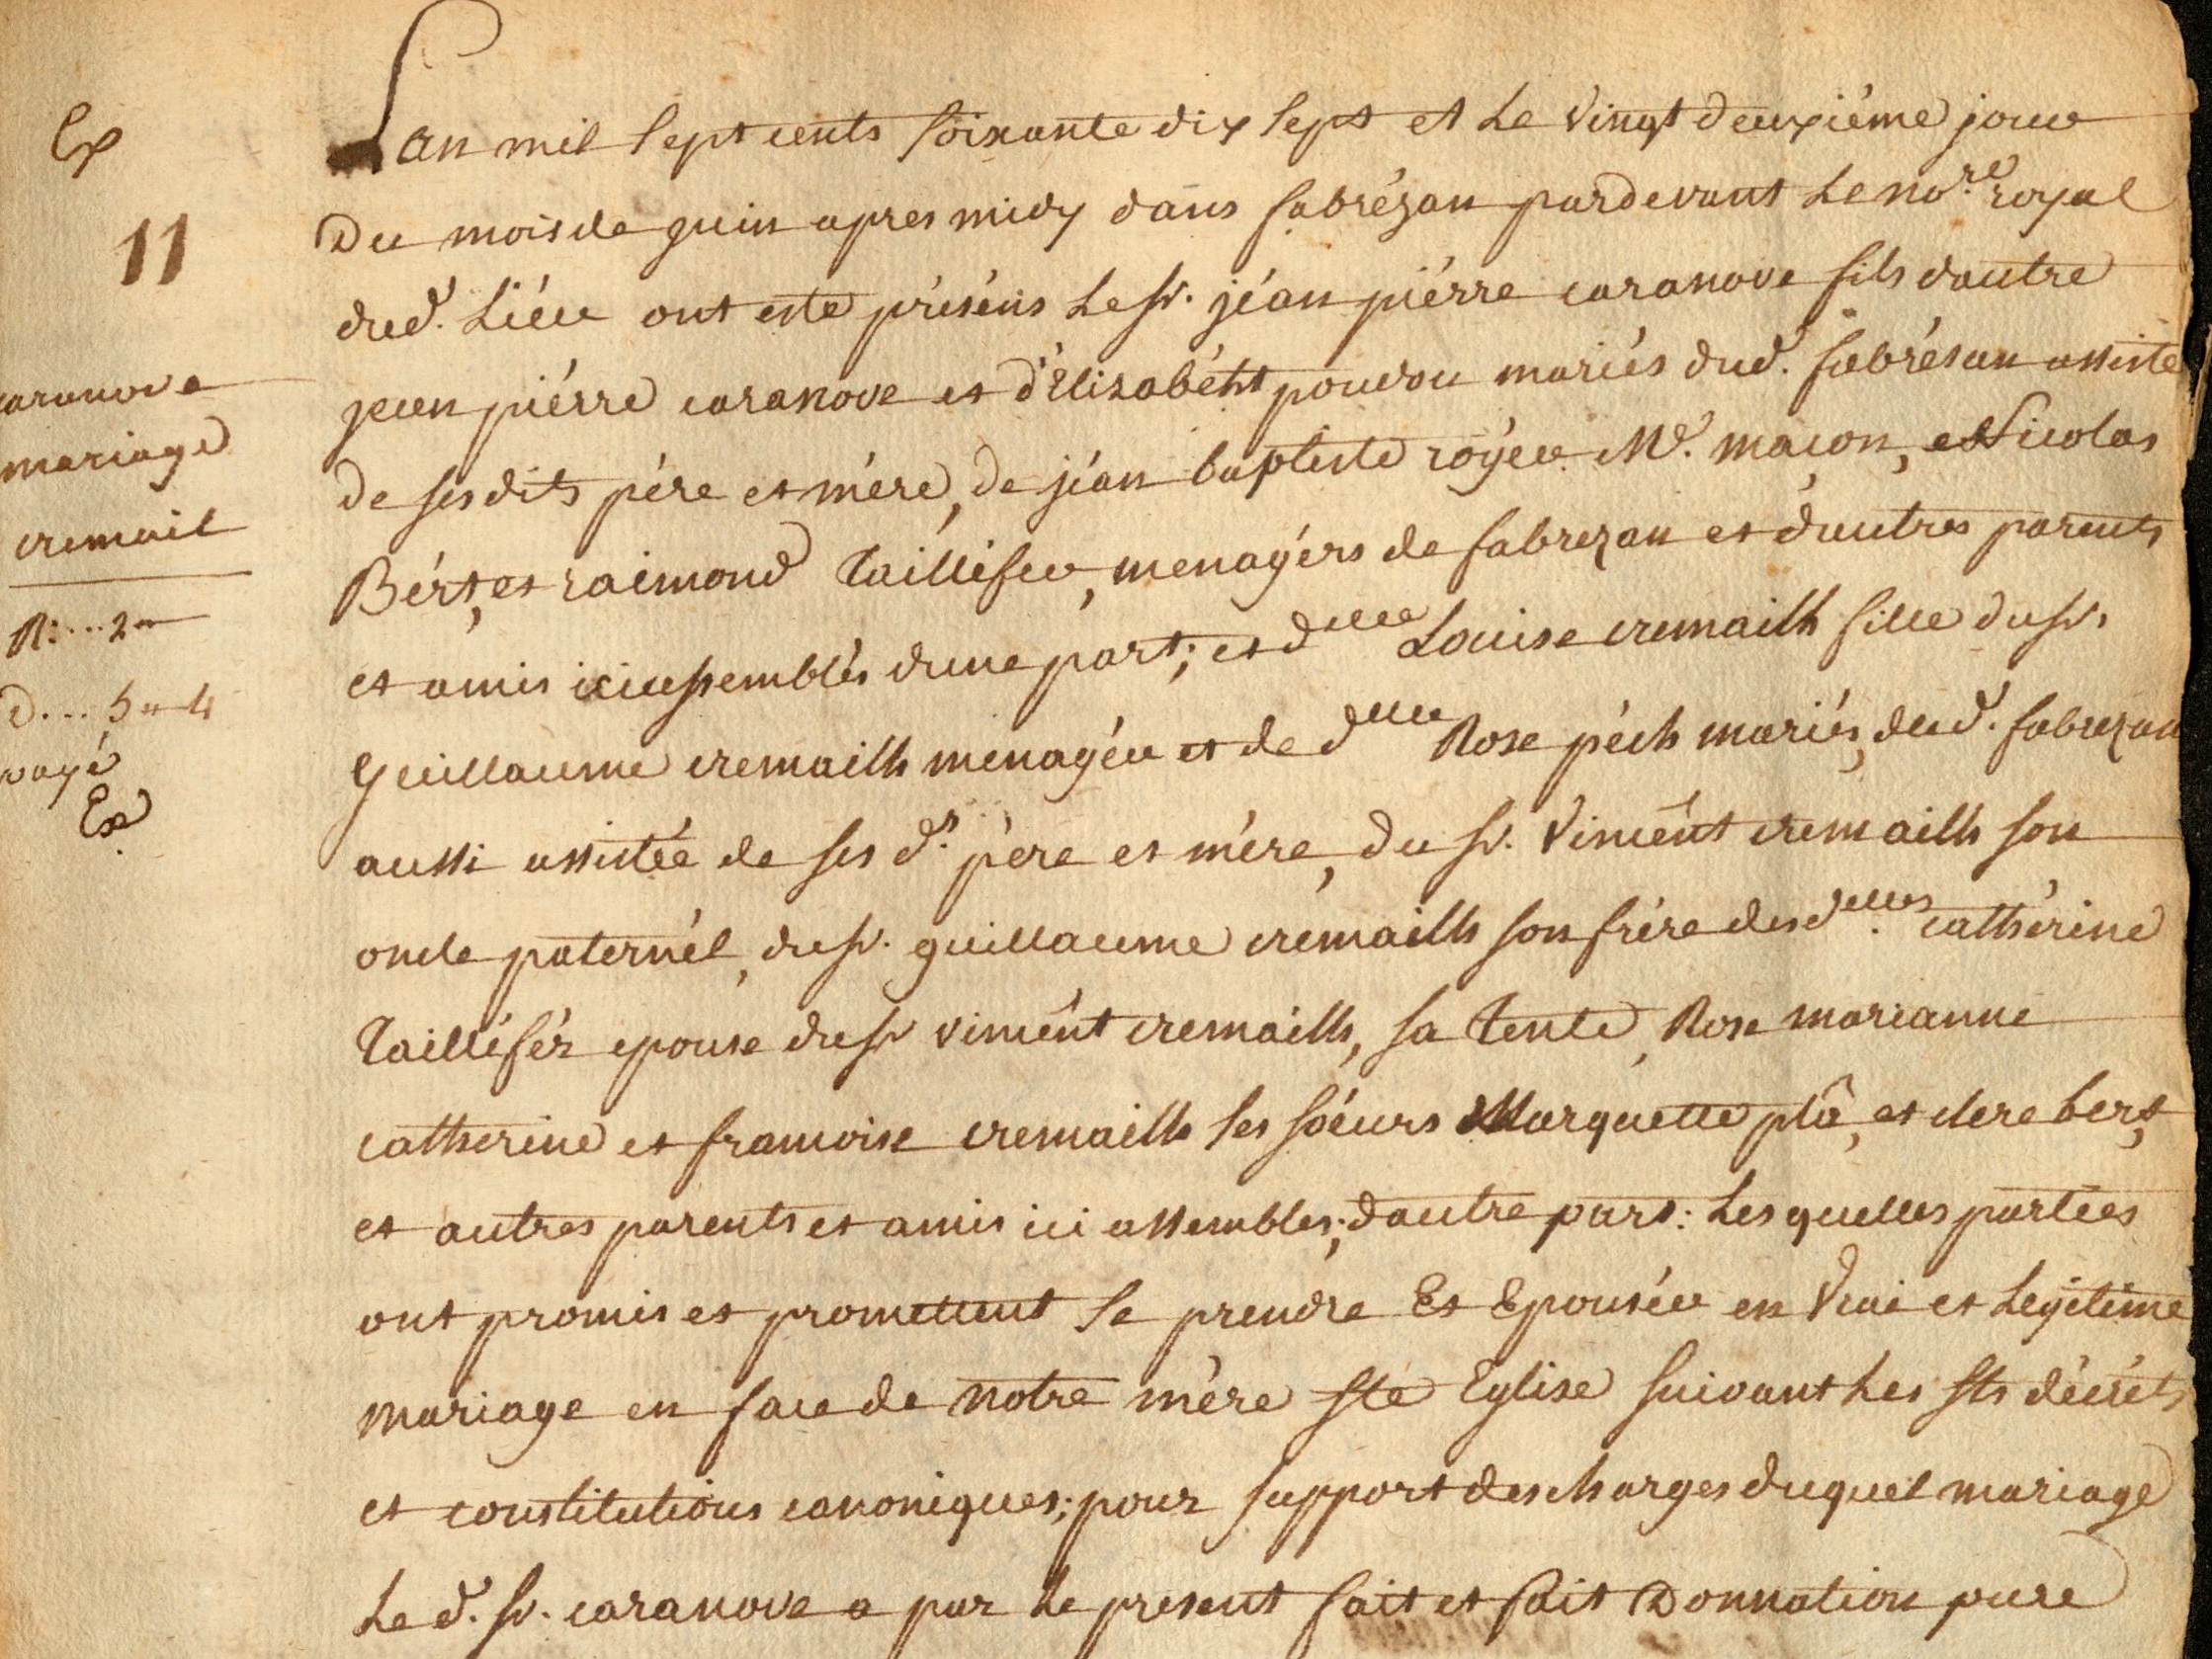 Ex
11
caranove
mariage
cremail
R:...2"
d...5"4
payé
Ex
Lan mil sept cents soixante dix sept et le vingt deuxiéme jour
Du mois de juin apres midy dans fabrézan pardevant le nore. royal
dud. Liéu ont esté préséns le sr. jéan piérre caranove fils dautre
jean piérre caranove et d'Elizabéht poudou mariés dud. fabrésan assisté
de ses dits pére et mére, de jéan baptiste royér Me. maçon, et Nicolas
Bért, et raimond Tailléfer, menagérs de fabrezan et d'autres parents
et amis ici assemblés dune part; et dlle Louise cremailh fille du sr.
guillaume cremailh menagér et de dlle Rose péch mariés, dud. fabrezan
aussi assistée de ses ds. pére et mére, du sr. Vincént cremailh son
oncle paternél, du sr. guillaume cremailh son frére des dlles. cathérine
Tailléfér epouse du sr vincént cremailh, sa tente, Rose marianne
catherine et francoise cremailh ses soéurs Marguette plâ, et clere bert,
et autres parents et amis ici assembles, d'autre part: Lesquelles parties
ont promis et promettent se prendre Et Epousér en Vrai et Legitime
mariage en face de notre mére ste Eglise suivant les sts décréts
et constitutions canoniques; pour support des charges duquel mariage
Le d. sr. caranove a par le present fait et fait Donnation pure